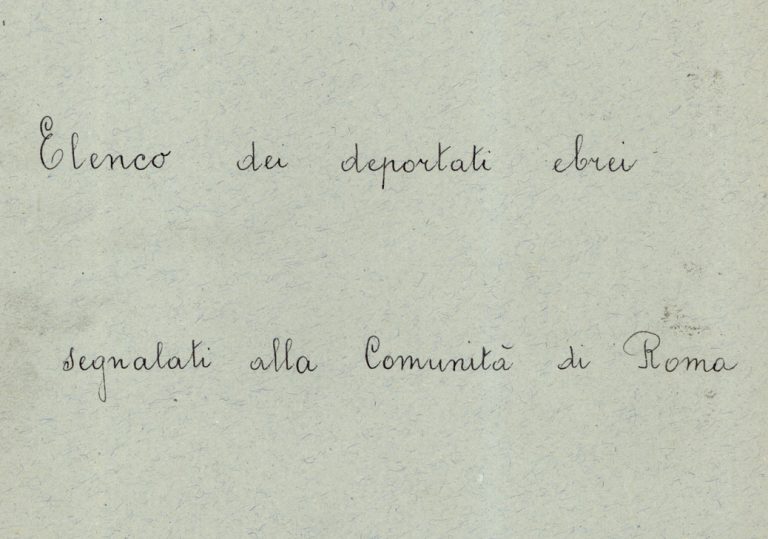 Elenco dei deportati ebrei
segnalati alla Comunità di Roma